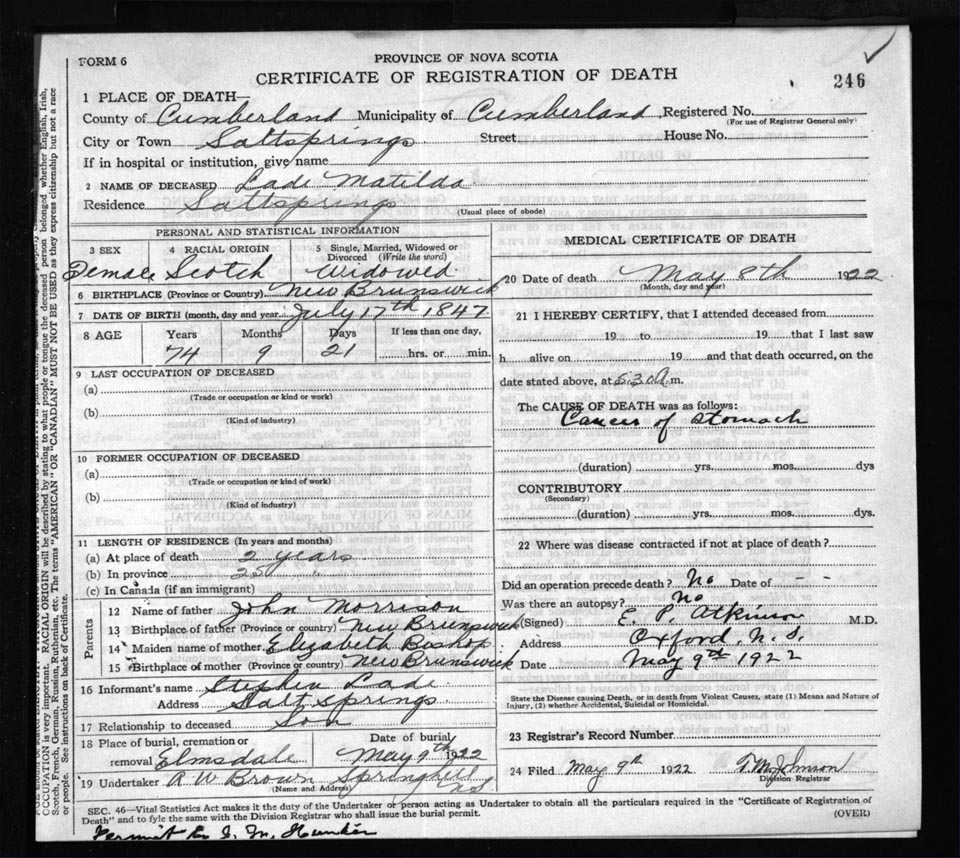 FORM 6
PROVINCE OF NOVA SCOTIA
CERTIFICATE OF REGISTRATION OF DEATH
246
1 PLACE OF DEATH—
County of Cumberland Municipality of Cumberland Registered No.
(For use of Registrar General only)
City or Town Saltsprings Street House No.
If in hospital or institution, give name
2 NAME OF DECEASED Lade Matilda
Residence Saltsprings
(Usual place of abode)
PERSONAL AND STATISTICAL INFORMATION
3 SEX 4 RACIAL ORIGIN 5 Single, Married, Widowed or Divorced (Write the word)
Female Scotch Widowed
6 BIRTHPLACE (Province or Country) New Brunswick
7 DATE OF BIRTH (month, day and year) July 17th 1847
8 AGE Years Months Days If less than one day,
74 9 21 hrs. or min.
9 LAST OCCUPATION OF DECEASED
(a)
(Trade or occupation or kind or work)
(b)
(Kind of industry)
10 FORMER OCCUPATION OF DECEASED
(a)
(Trade or occupation or kind of work)
(b)
(Kind of industry)
11 LENGTH OF RESIDENCE (In years and months)
(a) At place of death 2 years
(b) In province 25
(c) In Canada (if an immigrant)
Parents
12 Name of father John Morrison
13 Birthplace of father (Province or Country) New Brunswick
14 Maiden name of mother Elizabeth
15 Birthplace of mother (Province or Country) New Brunswick
16 Informant's name Stephen Lade
Address Salt Springs
17 Relationship to deceased Son
18 Place of burial, cremation or removal Elmsdale Date of burial May 9th 1922
19 Undertaker A W Brown Springhill NS
(Name and Address)
MEDICAL CERTIFICATE OF DEATH
20 Date of death May 8th 1922
(Month, day and year)
21 I HEREBY CERTIFY, that I attended deceased from
19 to 19 that I last saw
h alive on 19 and that death occurred, on the
date stated above, at 5.30 m.
The CAUSE OF DEATH was as follows:
Cancer of Stomach
(duration) yrs. mos. dys
CONTRIBUTORY
(Secondary)
(duration) yrs. mos. dys.
22 Where was disease contracted if not at place of death?
Did an operation precede death? No Date of - -
Was there an autopsy? No
(Signed) E. P. Atkinson M.D.
Address Oxford, N.S.
Date May 9th 1922
State the Disease causing Death, or in death from Violent Causes, state (1) Means and Nature of
Injury, (2) whether Accidental, Suicidal or Homicidal.
23 Registrar's Record Number
24 Filed May 9th 1922 Johnson
Division Registrar
SEC. 46—Vital Statistics Act makes it the duty of the Undertaker or person acting as Undertaker to obtain all the particulars required in the "Certificate of Registration of
Death" and to fyle the same with the Division Registrar who shall issue the burial permit.
(OVER)
Permit
OCCUPATION is very important. RACIAL ORIGIN will be described by stating to what people or tongue the deceased person belonged whether English, Irish,
Scotch, French, German, Russian, Ruthenian, etc. The terms "AMERICAN" OR "CANADIAN" MUST NOT BE USED as they express citizenship but not a race
or people. See instructions on back of Certificate.